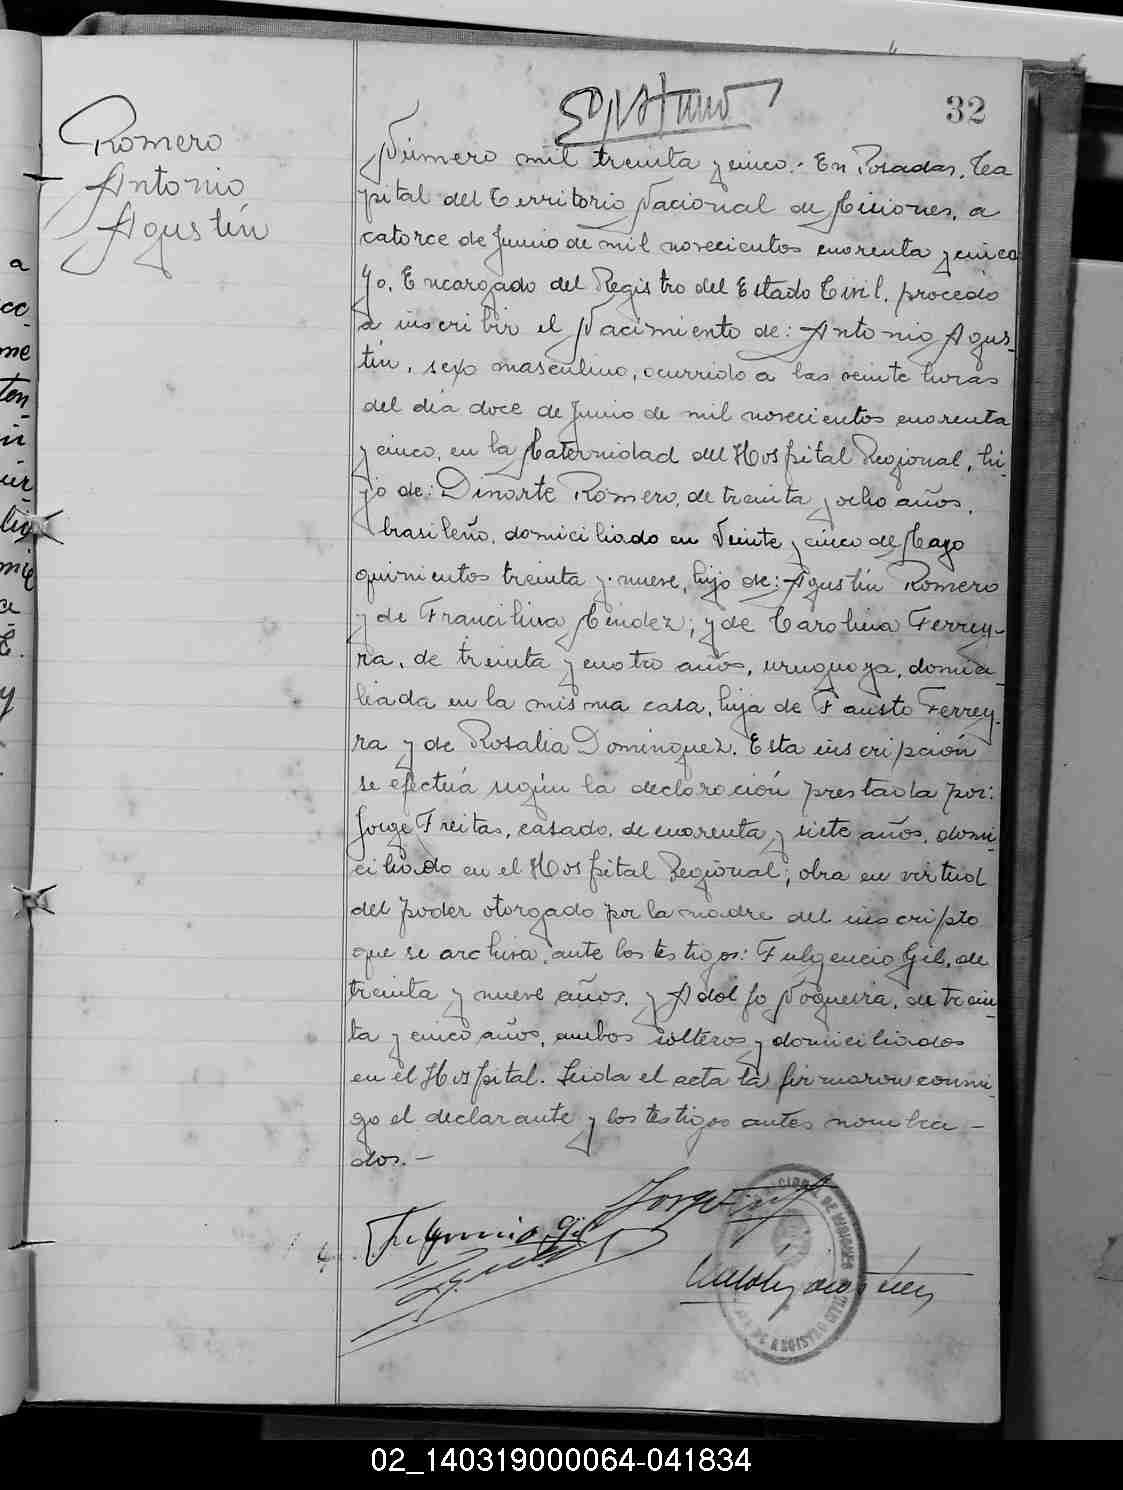 32
Romero
Antonio
Agustín
Número mil treinta y cinco.- En Posadas, Ca
pital del Territorio Nacional de Misiones, a
catorce de Junio de mil novecientos cuarenta y cinco
Yo, Encargado del Registro del Estado Civil, procedo
a inscribir el Nacimiento de: Antonio Agus-
tín, sexo masculino, ocurrido a las veinte horas
del día doce de Junio de mil novecientos cuarenta
y cinco, en la Maternidad del Hospital Regional, hi-
jo de: Dinarte Romero, de treinta y ocho años,
brasileño, domiciliado en Veinte y cinco de Mayo
quinientos treinta y nueve, hijo de: Agustín Romero
y de Francilina Méndez; y de Carolina Ferrey-
ra, de treinta y cuatro años, uruguaya, domici-
liada en la misma casa, hija de Fausto Ferrey-
ra y de Rosalia Dominguez. Esta inscripción
se efectúa según la declaración prestada por:
Jorge Freitas, casado, de cuarenta y siete años, domi-
ciliado en el Hospital Regional; obra en virtud
del poder otorgado por la madre del inscripto
que se archiva, ante los testigos: Fulgencio Gil, de
treinta y nueve años, y Adolfo Nogueira, de trein-
ta y cinco años, ambos solteros y domiciliados
en el Hospital. Leída el acta la firmaron conmi-
go el declarante y los testigos antes nombra-
dos.-
Fulgencio Gil
02_140319000064-041834